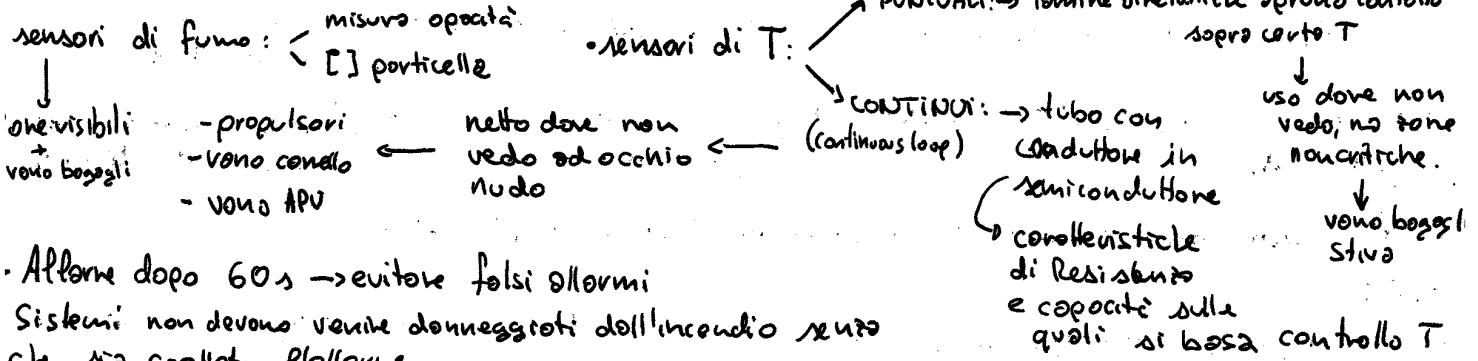 sensori di fumo:
misura opacità
[ ] particella
↓
aree visibili
+
vano bagagli
• sensori di T:
PUNTUALI: → lamine bimetalliche aprono contatto
sopra certo T
↓
uso dove non
vedo, ma zone
non critiche.
↓
vano bagagli
stiva
CONTINUI: → tubo con
(continuous loop)
conduttore in
semiconduttore
caratteristiche
di Resistenza
e capacità sulle
quali si basa controllo T
← metto dove non
vedo ad occhio
nudo
← - propulsori
- vano carrello
- vano APU
• Allarme dopo 60s → evitare falsi allarmi
Sistemi non devono venire danneggiati dall'incendio senza
che sia l'allarme